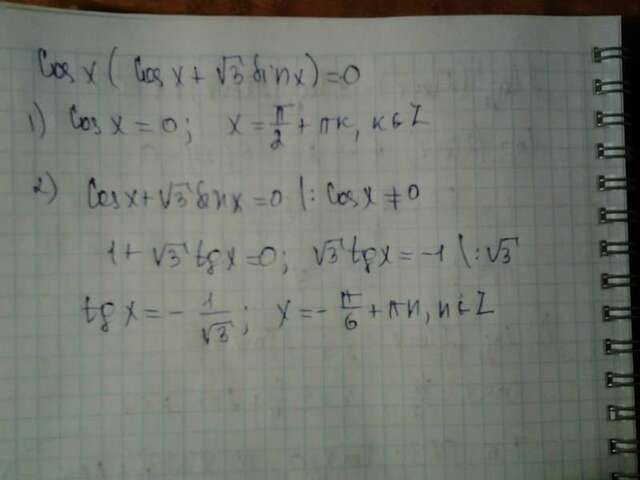 Cos x ( Cos x + √3 sin x ) = 0
1) Cos x = 0; x = π/2 + πk, k ∈ Z
2) Cos x + √3 sin x = 0 | : Cos x ≠ 0
1 + √3 tg x = 0; √3 tg x = -1 | : √3
tg x = - 1/√3; x = - π/6 + πn, n ∈ Z